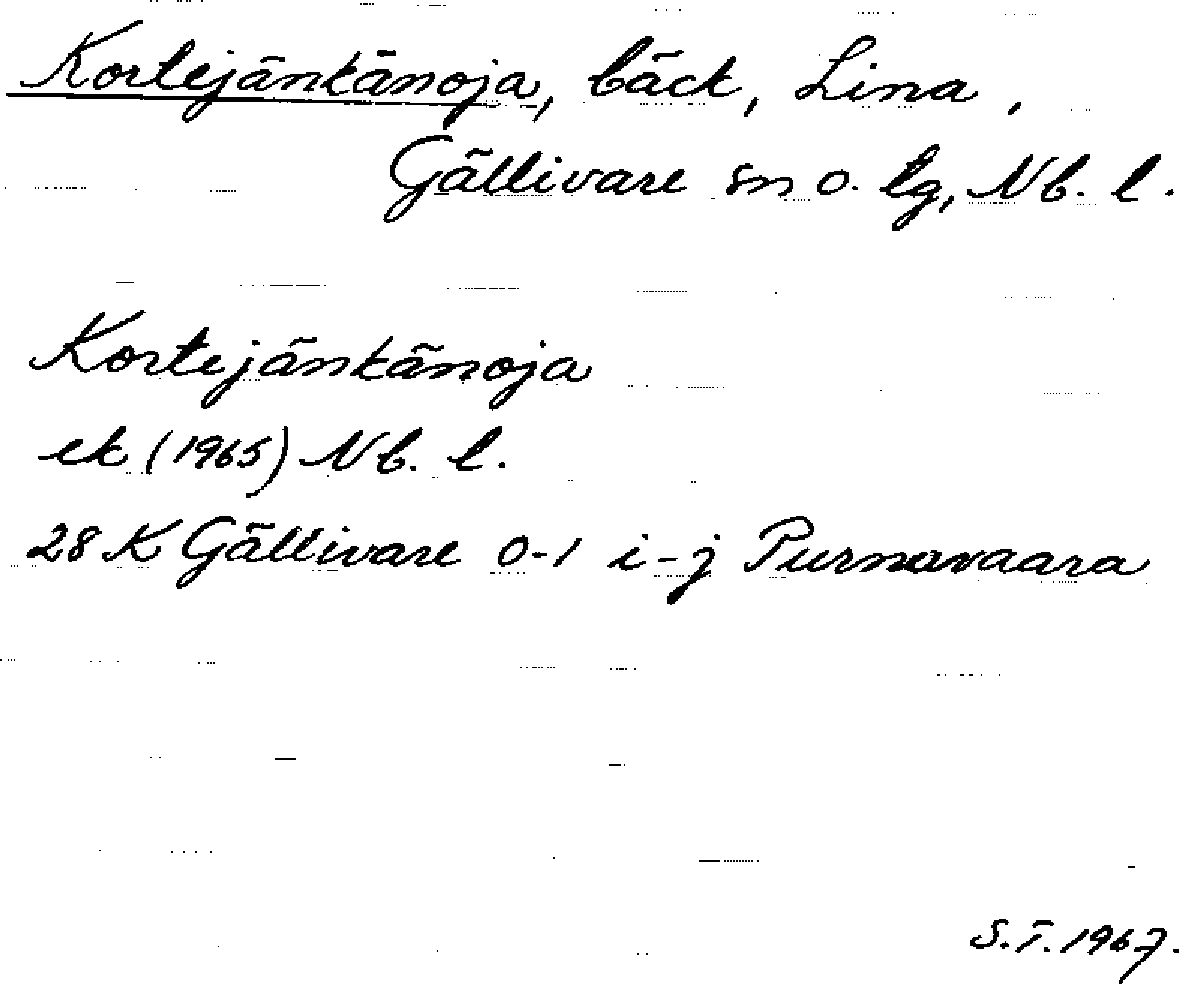 Kortejänkänoja, bäck, Lina,
Gällivare sn o. lg, Nb. l.
Kortejänkänoja
ek (1965) Nb. l.
28 K Gällivare 0-1 i-j Purnavaara
S.T. 1967.